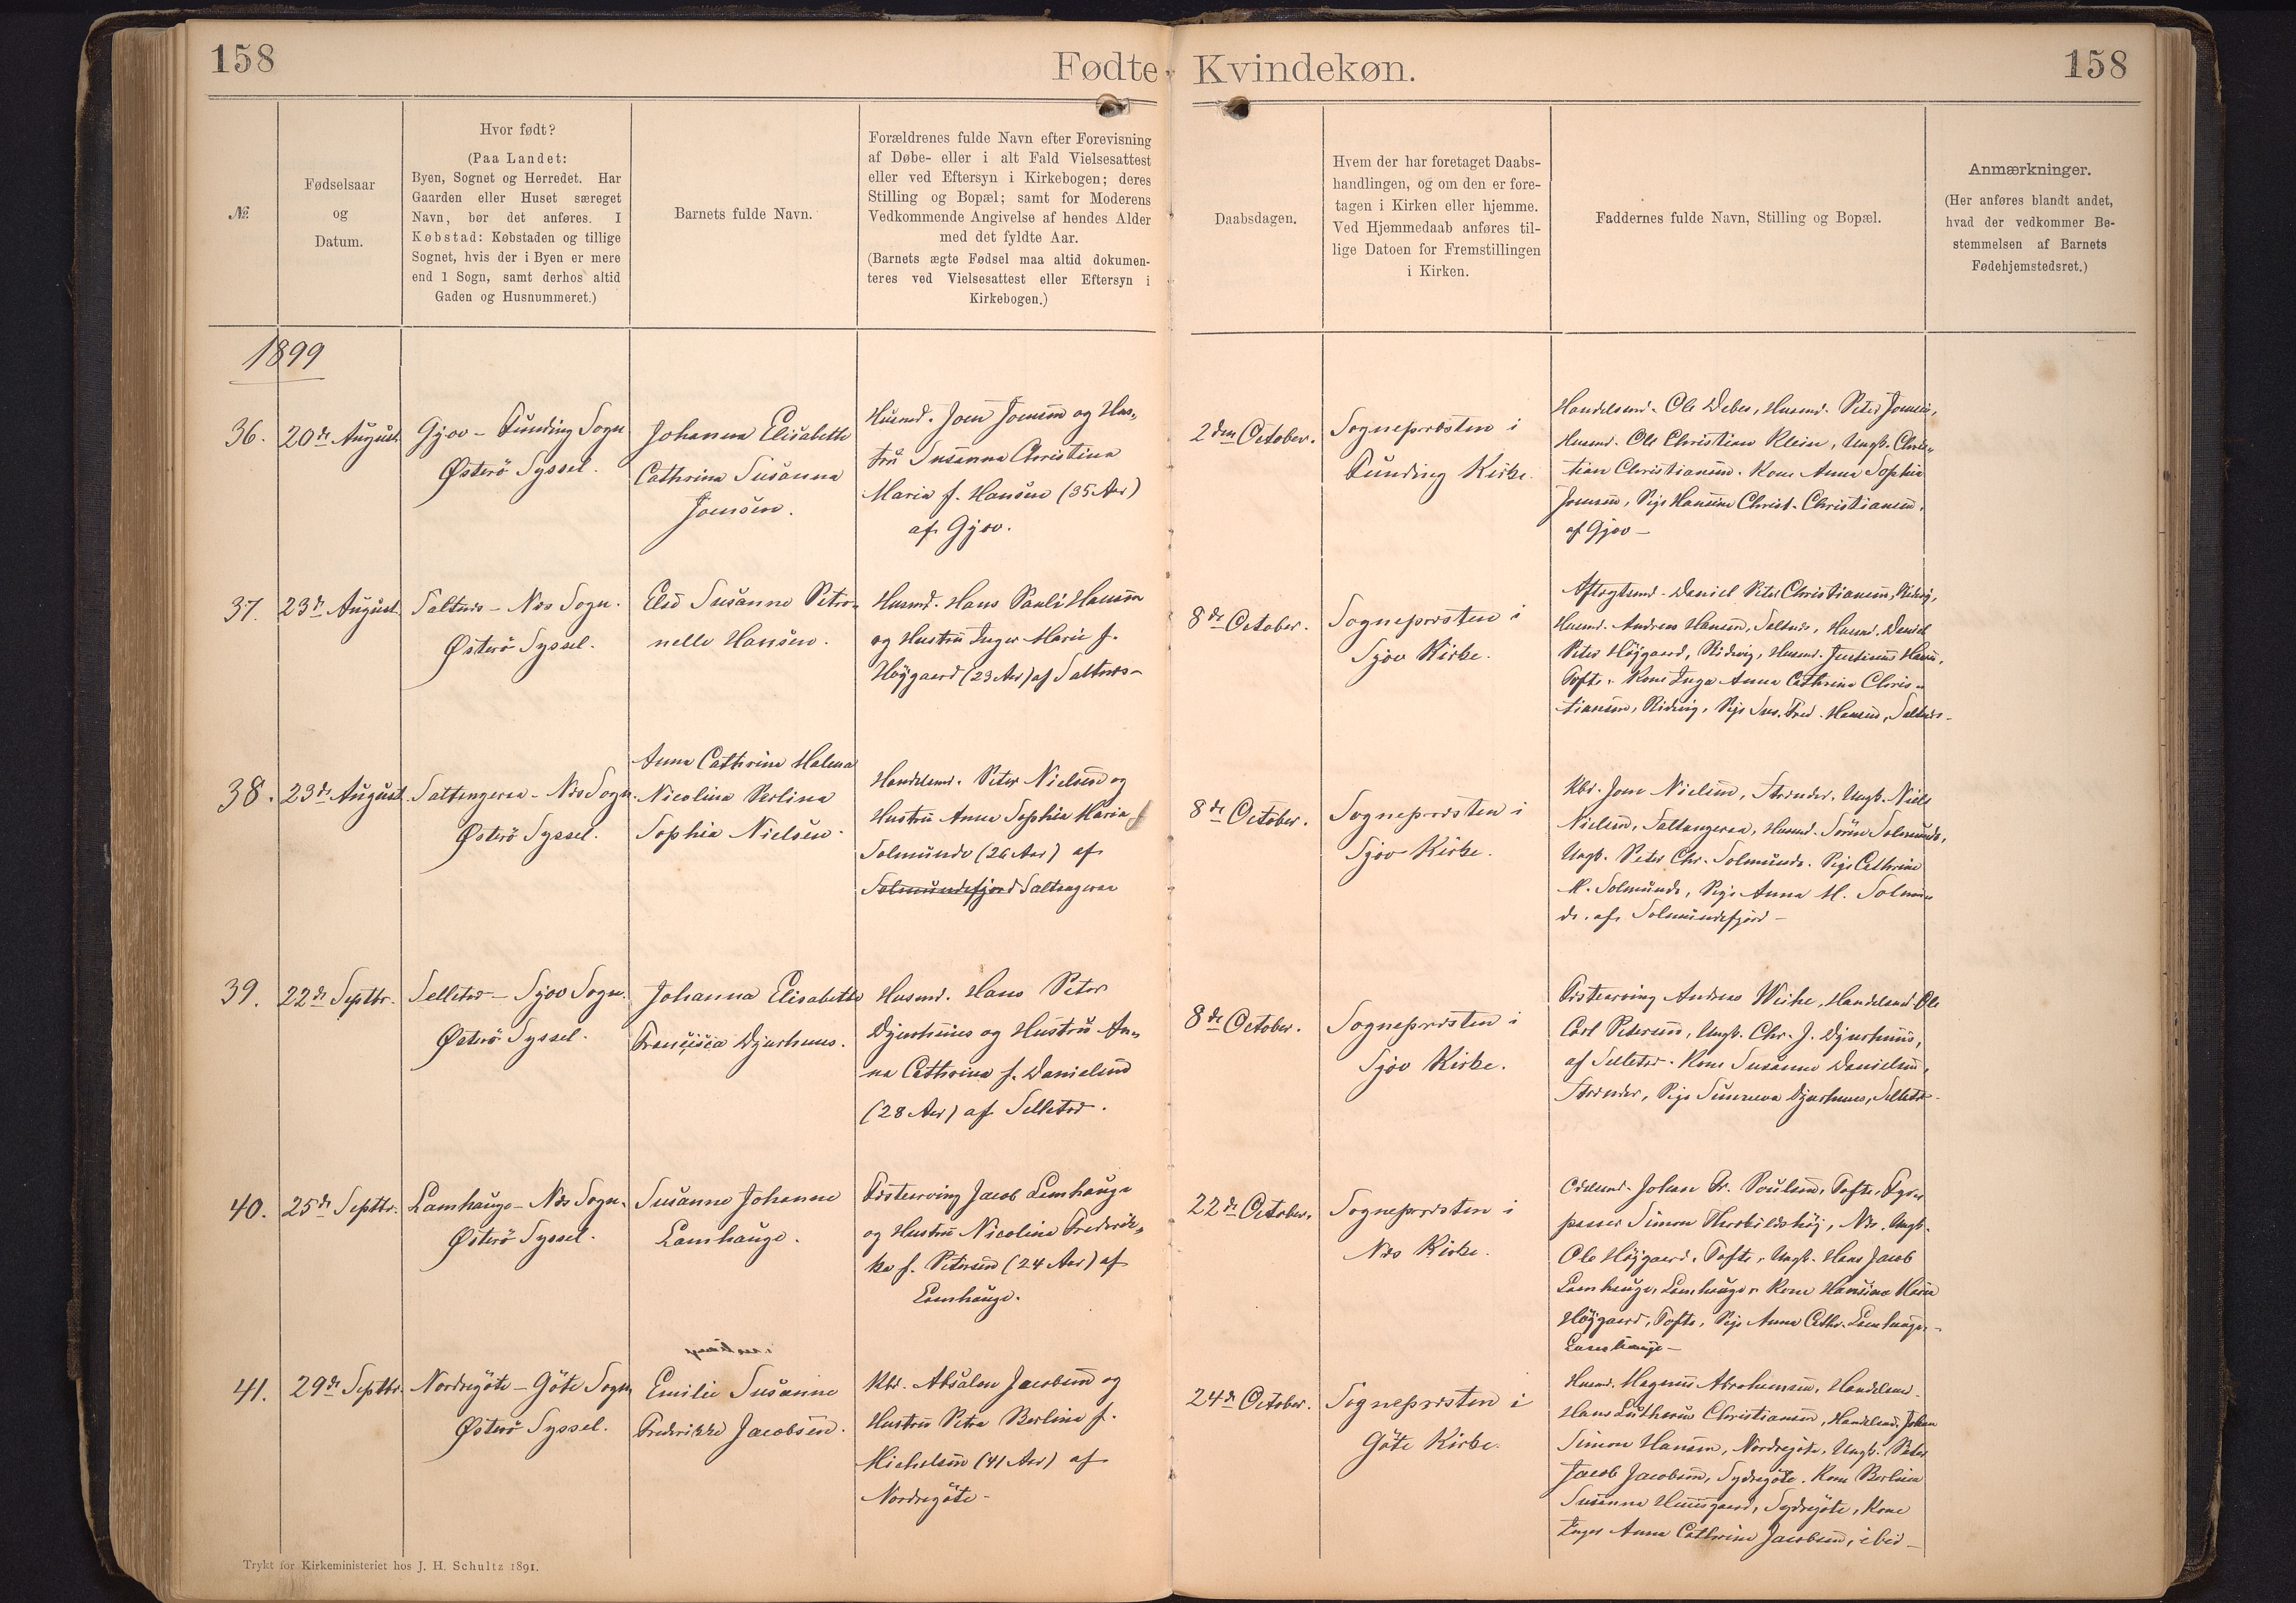 158
Fødte Kvindekøn.
158
№
Fødselsaar
og
Datum.
Hvor født?
(Paa Landet:
Byen, Sognet og Herredet. Har
Gaarden eller Huset særeget
Navn, bør det anføres. I
Købstad: Købstaden og tillige
Sognet, hvis der i Byen er mere
end 1 Sogn, samt derhos altid
Gaden og Husnummeret.)
Barnets fulde Navn.
Forældrenes fulde Navn efter Forevisning
af Døbe- eller i alt Fald Vielsesattest
eller ved Eftersyn i Kirkebogen; deres
Stilling og Bopæl; samt for Moderens
Vedkommende Angivelse af hendes Alder
med det fyldte Aar.
(Barnets ægte Fødsel maa altid dokumen-
teres ved Vielsesattest eller Eftersyn i
Kirkebogen.)
Daabsdagen.
Hvem der har foretaget Daabs-
handlingen, og om den er fore-
tagen i Kirken eller hjemme.
Ved Hjemmedaab anføres til-
lige Datoen for Fremstillingen
i Kirken.
Faddernes fulde Navn, Stilling og Bopæl.
Anmærkninger.
(Her anføres blandt andet,
hvad der vedkommer Be-
stemmelsen af Barnets
Fødehjemstedsret.)
1899
36.
20de August.
Gjov - Funding Sogn
Østerö Syssel.
Johanna Elisabeth
Cathrina Susanna
Joensen.
Husmd. Joen Joensen og Hus-
tru Susanna Christina
Maria f. Hansen (35 Aar)
af Gjov.
2den October.
Sognepræsten i
Funding Kirke.
Handelsmd. Ole Debes, Husmd. Peter Joensen,
Husmd. Ole Christian Klein, Ungk. Chris-
tian Christiansen. Kone Anna Sophia
Joensen, Pige Hansine Christ. Christiansen,
af Gjov -
37.
23de August.
Saltnæs - Næs Sogn.
Østerö Syssel.
Else Susanne Petro-
nelle Hansen.
Husmd. Hans Pauli Hansen
og Hustru Inger Marie f.
Höjgaard (23 Aar) af Saltnæs -
8de October.
Sognepræsten i
Sjov Kirke.
Aftægtsmd. Daniel Peter Christiansen, Ridevig,
Husmd. Andreas Hansen, Saltnæs, Husmd. Daniel
Peter Höjgaard, Ridevig, Husmd. Justinus Hansen,
Tofte. Kone Inga Anna Cathrine Chris-
tiansen, Ridevig, Pige Sus. Fred. Hansen, Saltnæs -
38.
23de August.
Saltangeraa - Næs Sogn.
Østerö Syssel.
Anna Cathrina Helena
Nicolina Perlina
Sophia Nielsen.
Handelsmd. Peter Nielsen og
Hustru Anna Sophia Maria f.
Solmunde (26 Aar) af
Solmundefjord Saltangeraa
8de October.
Sognepræsten i
Sjov Kirke.
Kbd. Joen Nielsen, Strænder, Ungk. Niels
Nielsen, Saltangeraa, Husmd. Sören Solmunde,
Ungk. Peter Chr. Solmunde. Pige Cathrine
M. Solmunde, Pige Anna M. Solmun-
de, af Solmundefjord -
39.
22de Septbr.
Selletræ - Sjov Sogn.
Østerö Syssel.
Johanna Elisabeth
Francisca Djurhuus.
Husmd. Hans Peter
Djurhuus og Hustru An-
na Cathrina f. Danielsen
(28 Aar) af Selletræ.
8de October.
Sognepræsten i
Sjov Kirke.
Fæstearving Andreas Weihe, Handelsmd. Ole
Carl Petersen, Ungk. Chr. J. Djurhuus,
af Selletræ. Kone Susanne Danielsen,
Strænder, Pige Sunneva Djurhuus, Selletræ -
40.
25de Septbr.
Lamhauge - Næs Sogn.
Østerö Syssel.
Susanne Johanne
Lamhauge.
Fæstearving Jacob Lamhauge
og Hustru Nicolina Frederik-
ka f. Petersen (24 Aar) af
Lamhauge.
22de October.
Sognepræsten i
Næs Kirke.
Odelsmd. Johan Fr. Poulsen, Tofte, Fyr-
passer Simon Thorkildshöj, Næs, Ungk.
Ole Höjgaard, Tofte, Ungk. Hans Jacob
Lamhauge, Lamhauge. Kone Hansine Marie
Höjgaard, Tofte, Pige Anna Cathr. Lamhauge,
Lamhauge -
41.
29de Septbr.
Nordregöte - Göte Sogn
Østerö Syssel.
Emilie Susanne
Frederikke Jacobsen.
Kbd. Absalon Jacobsen og
Hustru Petra Berlina f.
Michelsen (41 Aar) af
Nordregöte -
24de October.
Sognepræsten i
Göte Kirke.
Husmd. Magnus Abrahamsen, Handelsmd.
Hans Lutherus Christiansen, Handelsmd. Johan
Simon Hansen, Nordregöte, Ungk. Peter
Jacob Jacobsen, Sydregöte. Kone Berlina
Susanna Huusgaard, Sydregöte, Kone
Inger Anna Cathrine Jacobsen, ibid -
Trykt for Kirkeministeriet hos J. H. Schultz 1891.